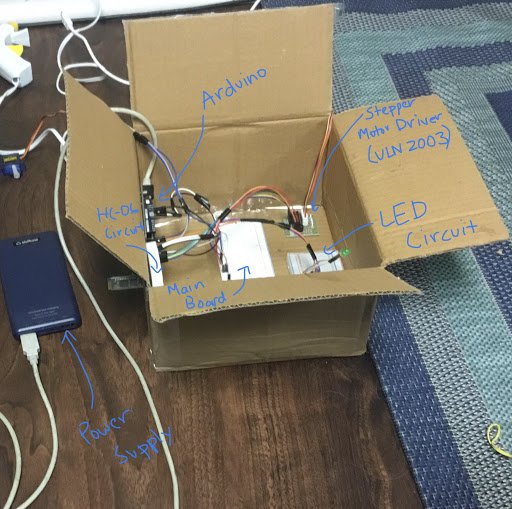 Arduino
Stepper
Motor Driver
(ULN2003)
HC-06
Circuit
LED
Circuit
Main
Board
Power
Supply